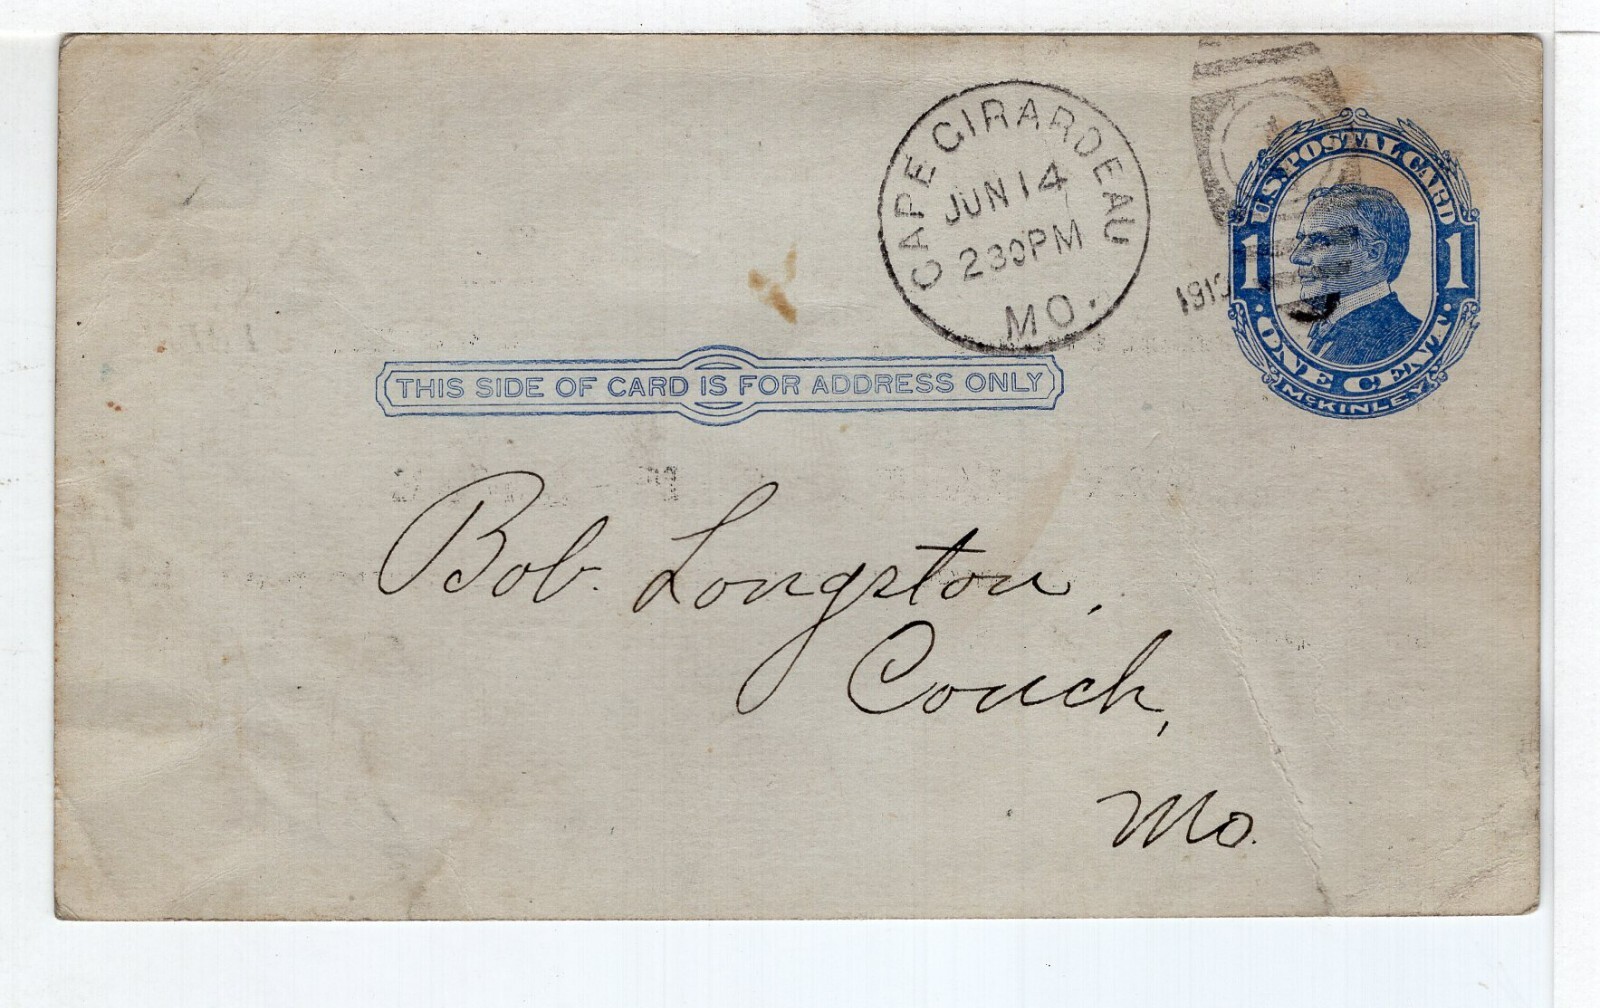 CAPE GIRARDEAU
JUN 14
230PM
MO.
U.S. POSTAL CARD
1 1
ONE CENT.
McKINLEY
THIS SIDE OF CARD IS FOR ADDRESS ONLY
Bob. Longston,
Couch,
Mo.